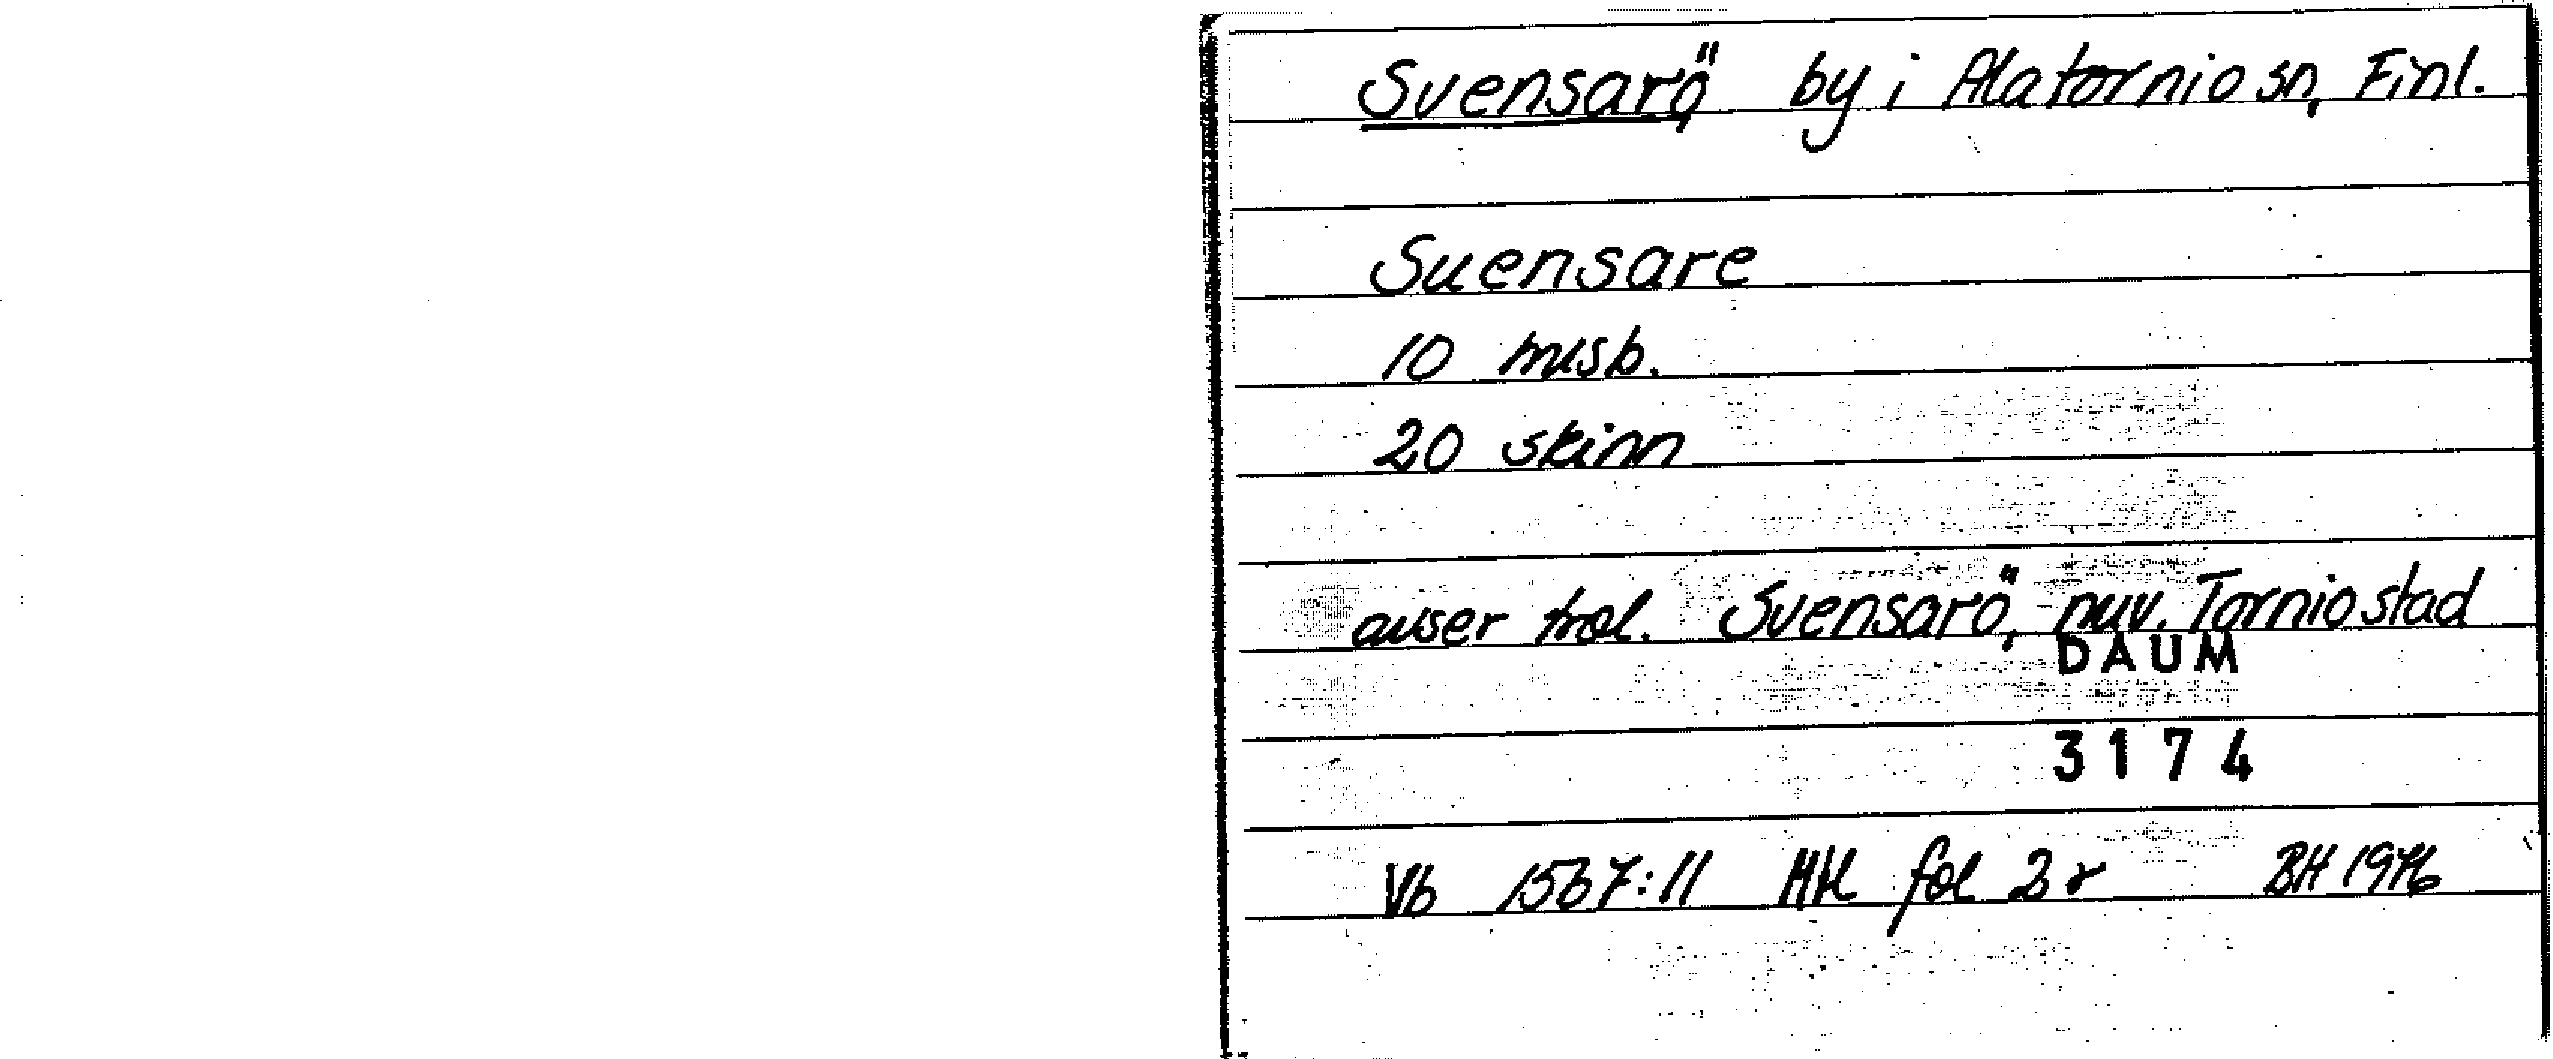 Svensarö, by i Alatornio sn, Finl.
Suensare
10 mlsb.
20 skinn
avser trol. Svensarö, nuv. Tornio stad
DAUM
3174
Vb 1567:11 MH fol 2r BH 1976